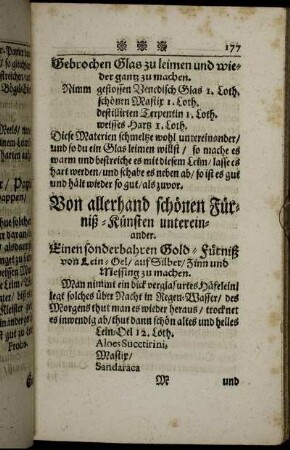 177
Gebrochen Glas zu leimen und wie-
der gantz zu machen.
Nimm gestossen Venedisch Glas 1. Loth.
schönen Mastix 1. Loth.
destilirten Terpentin 1. Loth.
weisses Hartz 1. Loth.
Diese Materien schmeltze wohl untereinander/
und so du ein Glas leimen willst/ so mache es
warm und bestreiche es mit diesem Leim/ lasse es
hart werden/ und schabe es neben ab/ so ist es gut
und hält wieder so gut/ als zuvor.
Von allerhand schönen Für-
niß-Künsten unterein-
ander.
Einen sonderbahren Gold-Fürniß
von Lein-Oel/ auf Silber/ Zinn und
Messing zu machen.
Man nimmt ein dick verglasurtes Häfelein/
legt solches über Nacht in Regen-Wasser/ des
Morgens thut man es wieder heraus/ trocknet
es inwendig ab/ thut dann schön altes und helles
Lein-Oel 12. Loth.
Aloes Succtirini,
Mastix/
Sandaraca
M und